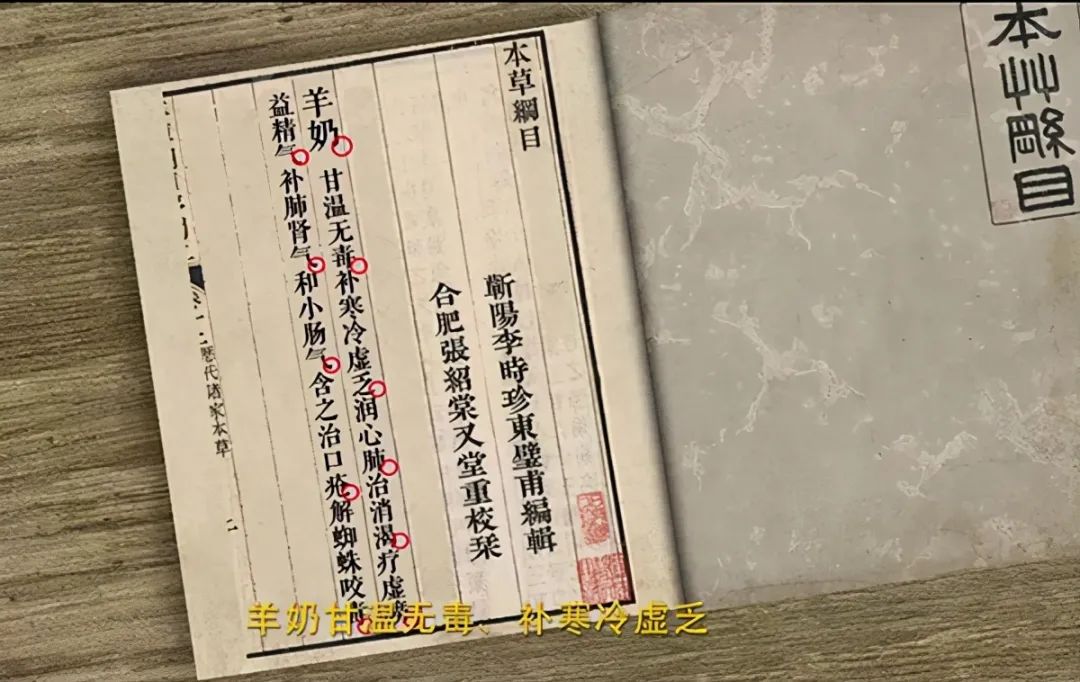 本艸綱目
本草綱目
蘄陽李時珍東璧甫編輯
合肥張紹棠又堂重校栞
羊奶 甘温无毒补寒冷虚乏润心肺治消渴疗虚
益精气补肺肾气和小肠气含之治口疮解蜘蛛咬毒
歷代諸家本草
二
羊奶甘温无毒、补寒冷虚乏